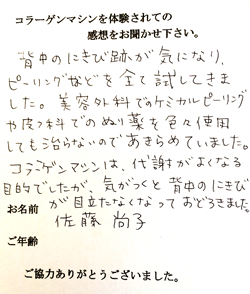 コラーゲンマシンを体験されての
感想をお聞かせ下さい。
背中のにきび跡が気になり、
ピーリングなどを全て試してきま
した。美容外科でのケミカルピーリング
や皮フ科でのぬり薬を色々使用
しても治らないのであきらめていました。
コラーゲンマシンは、代謝がよくなる
目的でしたが、気がつくと背中のにきび
が目立たなくなっておどろきました。
お名前 佐藤 尚子
ご年齢
ご協力ありがとうございました。